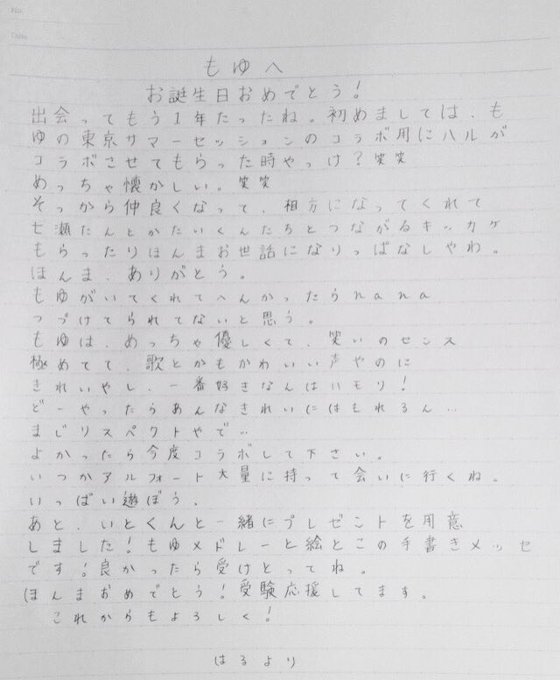 もゆへ
お誕生日おめでとう!
出会ってもう1年たったね。初めましては、も
ゆの東京サマーセッションのコラボ用にハルが
コラボさせてもらった時やっけ?笑笑
めっちゃ懐かしい。笑笑
そっから仲良くなって、相方になってくれて
七瀬たんとかたいくんたちとつながるキッカケ
もらったりほんまお世話になりっぱなしやわ。
ほんま、ありがとう。
もゆがいてくれてへんかったらnana
つづけてられてないと思う。
もゆは、めっちゃ優しくて、笑いのセンス
極めてて、歌とかもかわいい声やのに
きれいやし、一番好きなんはハモリ!
どーやったらあんなきれいにはもれるん…
まじリスペクトやで…
よかったら今度コラボして下さい。
いつかアルフォート大量に持って会いに行くね。
いっぱい遊ぼう、
あと、いとくんと一緒にプレゼントを用意
しました!もゆメドレーと絵とこの手書きメッセ
です!良かったら受けとってね。
ほんまおめでとう!受験応援してます。
これからもよろしく!
はるより